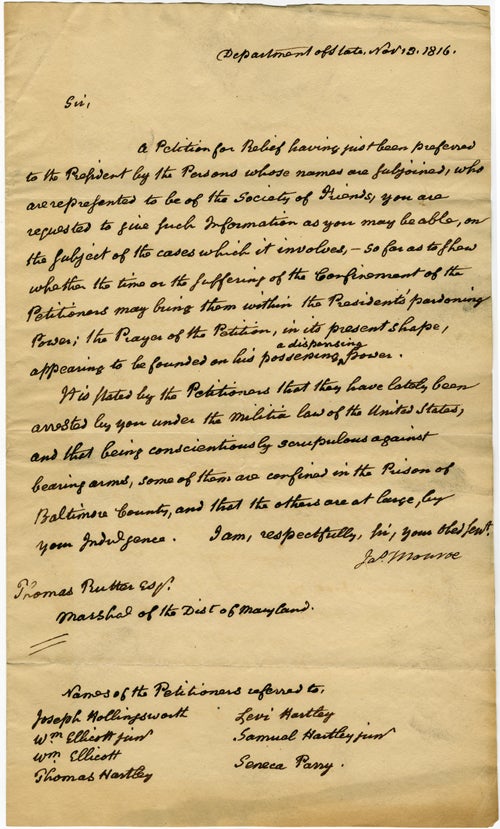 Department of State, Nov 13. 1816.
Sir,
A Petition for Relief having just been preferred
to the President by the Persons whose names are subjoined, who
are represented to be of the Society of Friends, you are
requested to give such Information as you may be able, on
the subject of the cases which it involves, – so far as to shew
whether the time or the suffering of the Confinement of the
Petitioners may bring them within the Presidents' pardoning
Power; the Prayer of the Petition, in its present shape,
a dispensing
appearing to be founded on his possessing ^ power.
It is stated by the Petitioners that they have lately been
arrested by you under the Militia law of the United States,
and that being conscientiously scrupulous against
bearing arms, some of them are confined in the Prison of
Baltimore County, and that the others are at large, by
your Indulgence. I am, respectfully, Sir, your Obed. Servt.
Jas. Monroe
Thomas Rutter Esqr.
Marshal of the Dist of Maryland.
Names of the Petitioners referred to,
Joseph Hollingsworth Levi Hartley
Wm Ellicott junr Samuel Hartley junr
Wm Ellicott
Seneca Parry.
Thomas Hartley